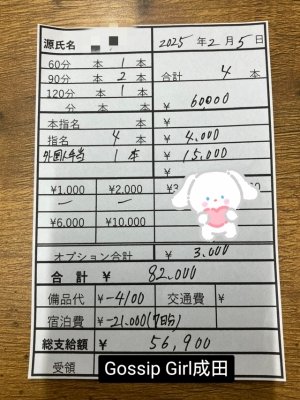 源氏名 2025年2月5日
60分 本 1 本
90分 本 2 本 合計 4 本
120分 本 1 本
分 本 本 ¥ 60,000
本指名 本 ¥
指名 4 本 ¥ 4,000
外国人手当 1 本 ¥ 15,000
¥1,000 ¥2,000
ー ー
¥6,000 ¥10,000
ー
オプション合計 ¥ 3,000
合計 ¥ 82,000
備品代 ¥-4100 交通費 ¥
宿泊費 ¥-21,000(7日分)
総支給額 ¥ 56,900
受領
Gossip Girl成田